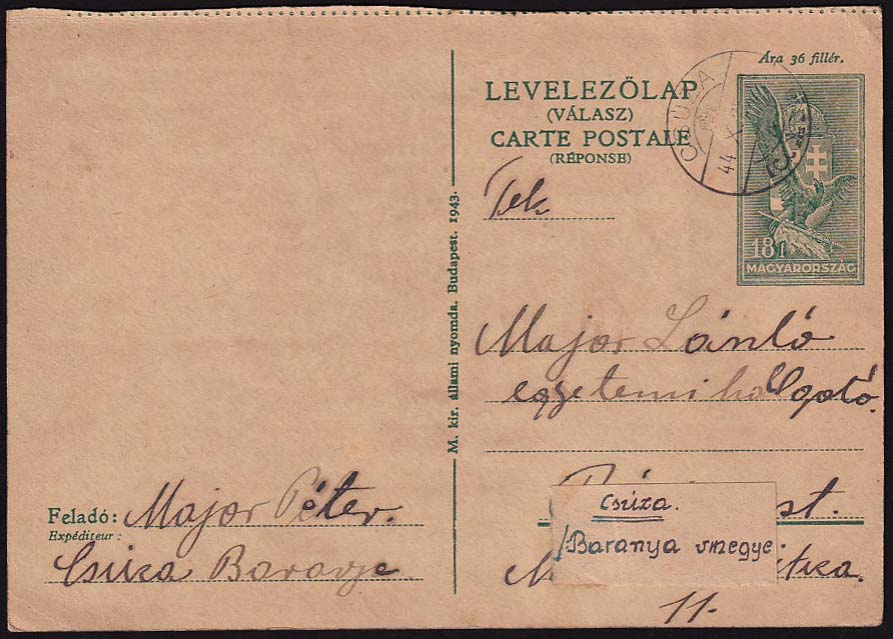 Ára 36 fillér.
LEVELEZŐLAP
(VÁLASZ)
CARTE POSTALE
(RÉPONSE)
CSUZA
44 X
18 f
MAGYARORSZÁG
Tek
Major László
egyetemi hallgató.
Csúza.
Baranya vmegye
11.
M. kir. állami nyomda. Budapest. 1943.
Feladó: Major Péter.
Expéditeur:
Csúza Baranya